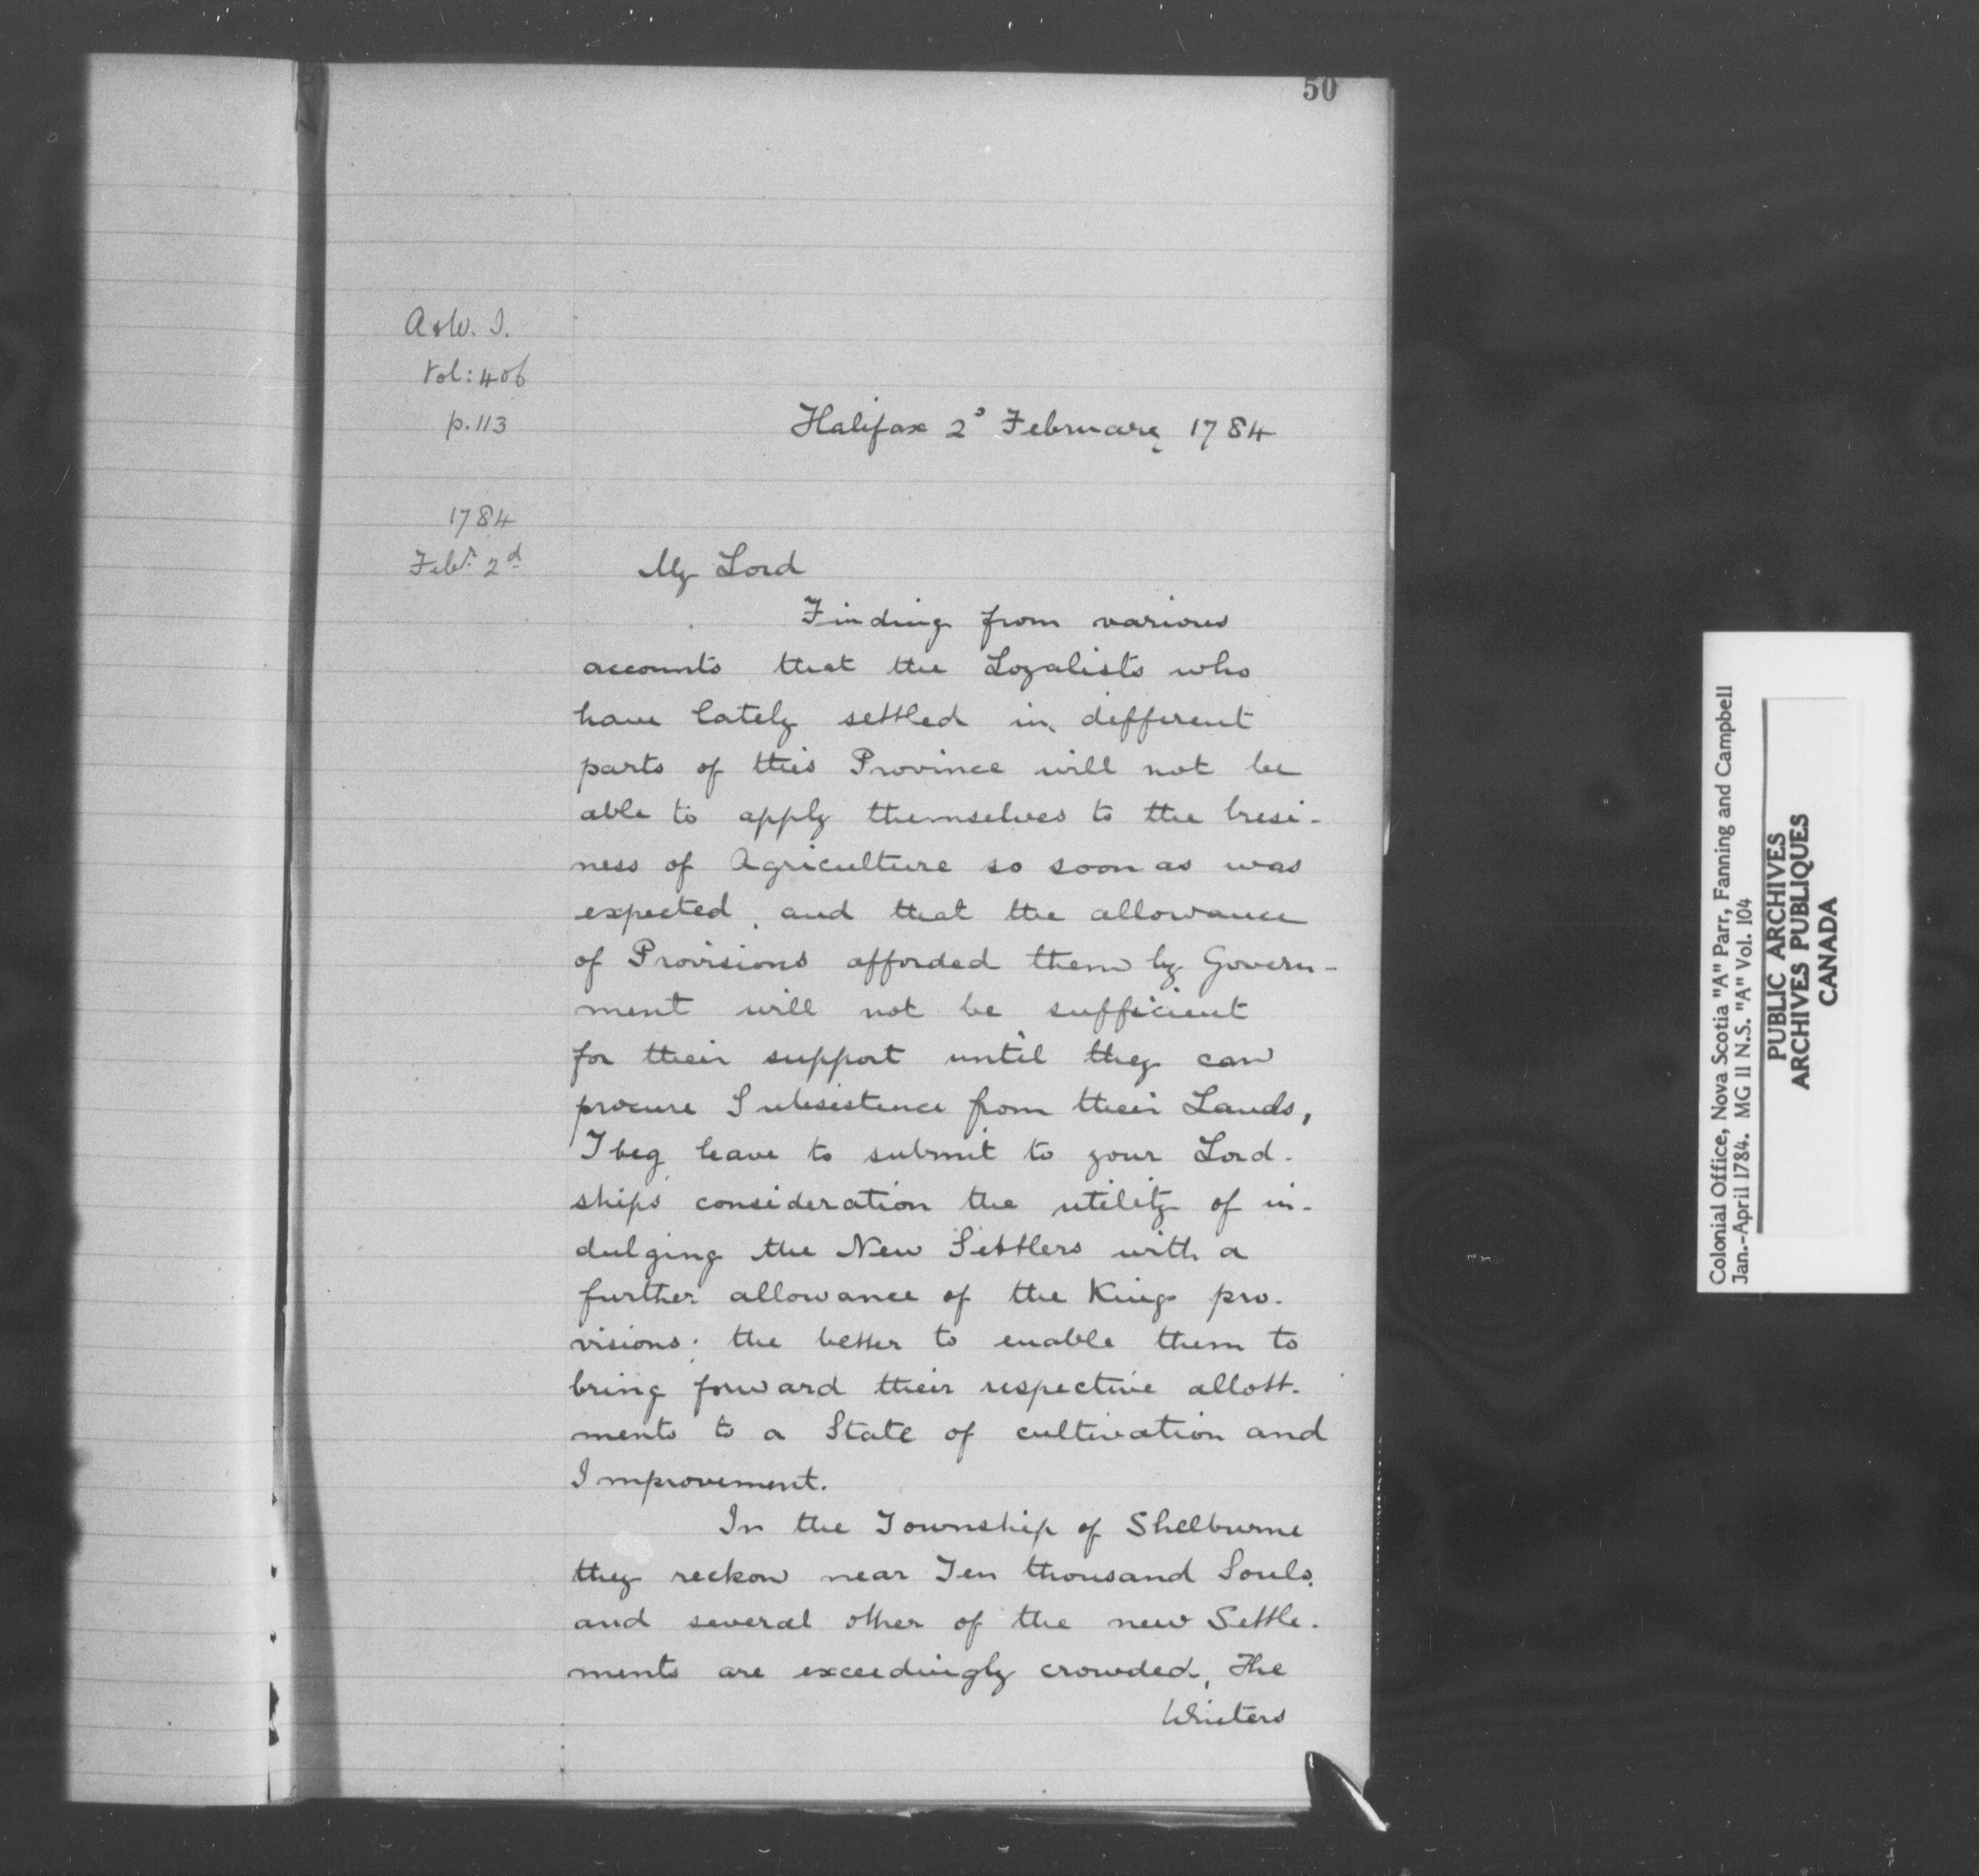 50
A & W. I.
Vol: 406
p. 113
Halifax 2d February 1784
1784
Feb.r 2d
My Lord
Finding from various
accounts that the Loyalists who
have lately settled in different
parts of this Province will not be
able to apply themselves to the busi-
ness of Agriculture so soon as was
expected, and that the allowance
of Provisions afforded them by Govern-
ment will not be sufficient
for their support until they can
procure Subsistence from their Lands,
I beg leave to submit to your Lord-
ships consideration the utility of in-
dulging the New Settlers with a
further allowance of the Kings pro-
visions; the better to enable them to
bring forward their respective allott-
ments to a State of cultivation and
Improvement.
In the Township of Shelburne
they reckon near Ten thousand Souls,
and several other of the new Settle-
ments are exceedingly crowded, The
Winters
Colonial Office, Nova Scotia "A" Parr, Fanning and Campbell
Jan.-April 1784. MG 11 N.S. "A" Vol. 104
PUBLIC ARCHIVES
ARCHIVES PUBLIQUES
CANADA